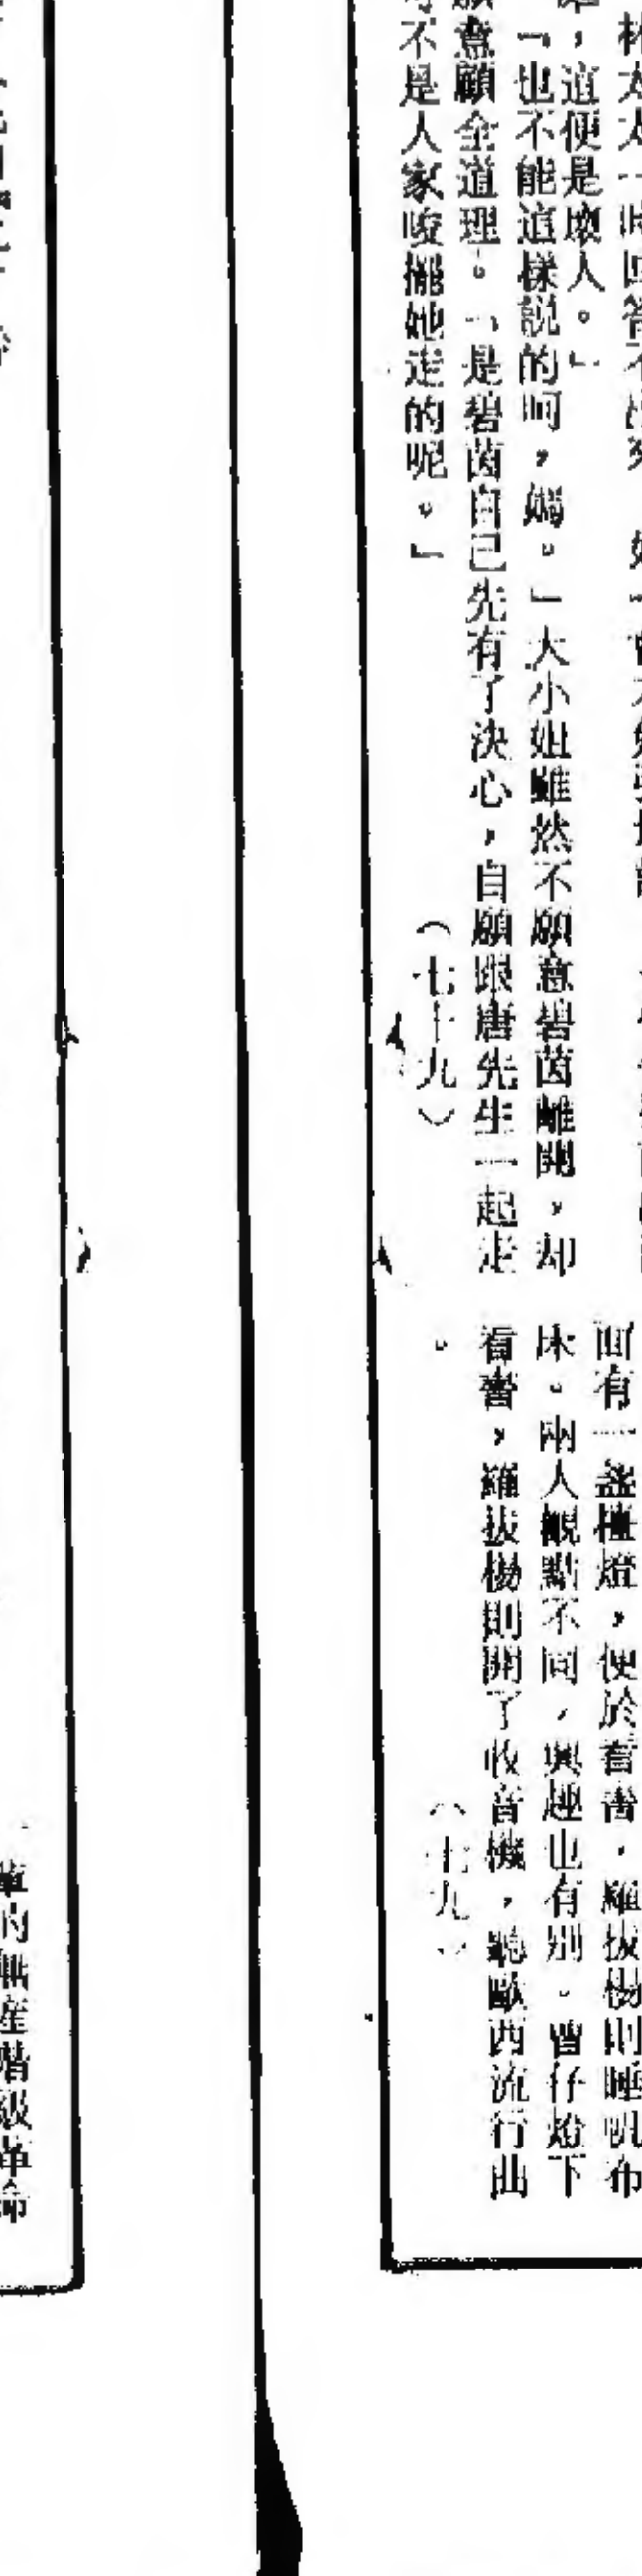 林太太一時回答不出來
，這便是壞人。」
「也不能這樣說的呵，媽。」大小姐雖然不願意碧茵離開，却
顧全道理。「是碧茵自己先有了決心，自願跟唐先生一起走
不是人家唆擺她走的呢。」
（七十九）
面有一盞檯燈，便於看書，羅拔楊則睡帆布
床。兩人觀點不同，興趣也有別。曾仔燈下
看書，羅拔楊則開了收音機，聽歐西流行曲
。
（十九）
的無產階級革命